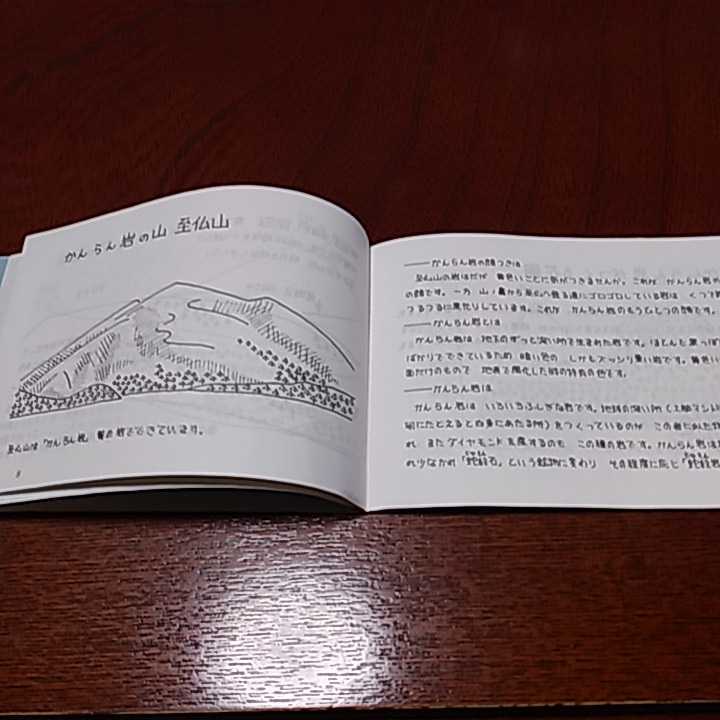 かんらん岩の山 至仏山
至仏山は「かんらん岩」質の岩でできています。
8
かんらん岩の顔つきは
至仏山の岩はだが 黄色いことに気がつきませんか。これが かんらん岩
の顔です。一方 山ノ鼻から至仏へ登る道にゴロゴロしている岩は
つるつるに黒光りしています。これが かんらん岩のもうひとつの顔です。
かんらん岩とは
かんらん岩は 地下のずっと深い所で生まれた岩です。ほとんど黒っぽ
ばかりでできているため 暗い色の しかもズッシリ重い岩です。黄色い
面だけのもので 地表で風化した時の特有の色です。
かんらん岩は
かんらん岩は いろいろふしぎな岩です。地球の深い所(上部マント
卵にたとえると白身にあたる所)をつくっているのが この岩
れ またダイヤモンドを産するのも この種の岩です。かんらん岩は
れ少なかれ「蛇紋石」という鉱物に変わり その程度に応じ「蛇紋岩